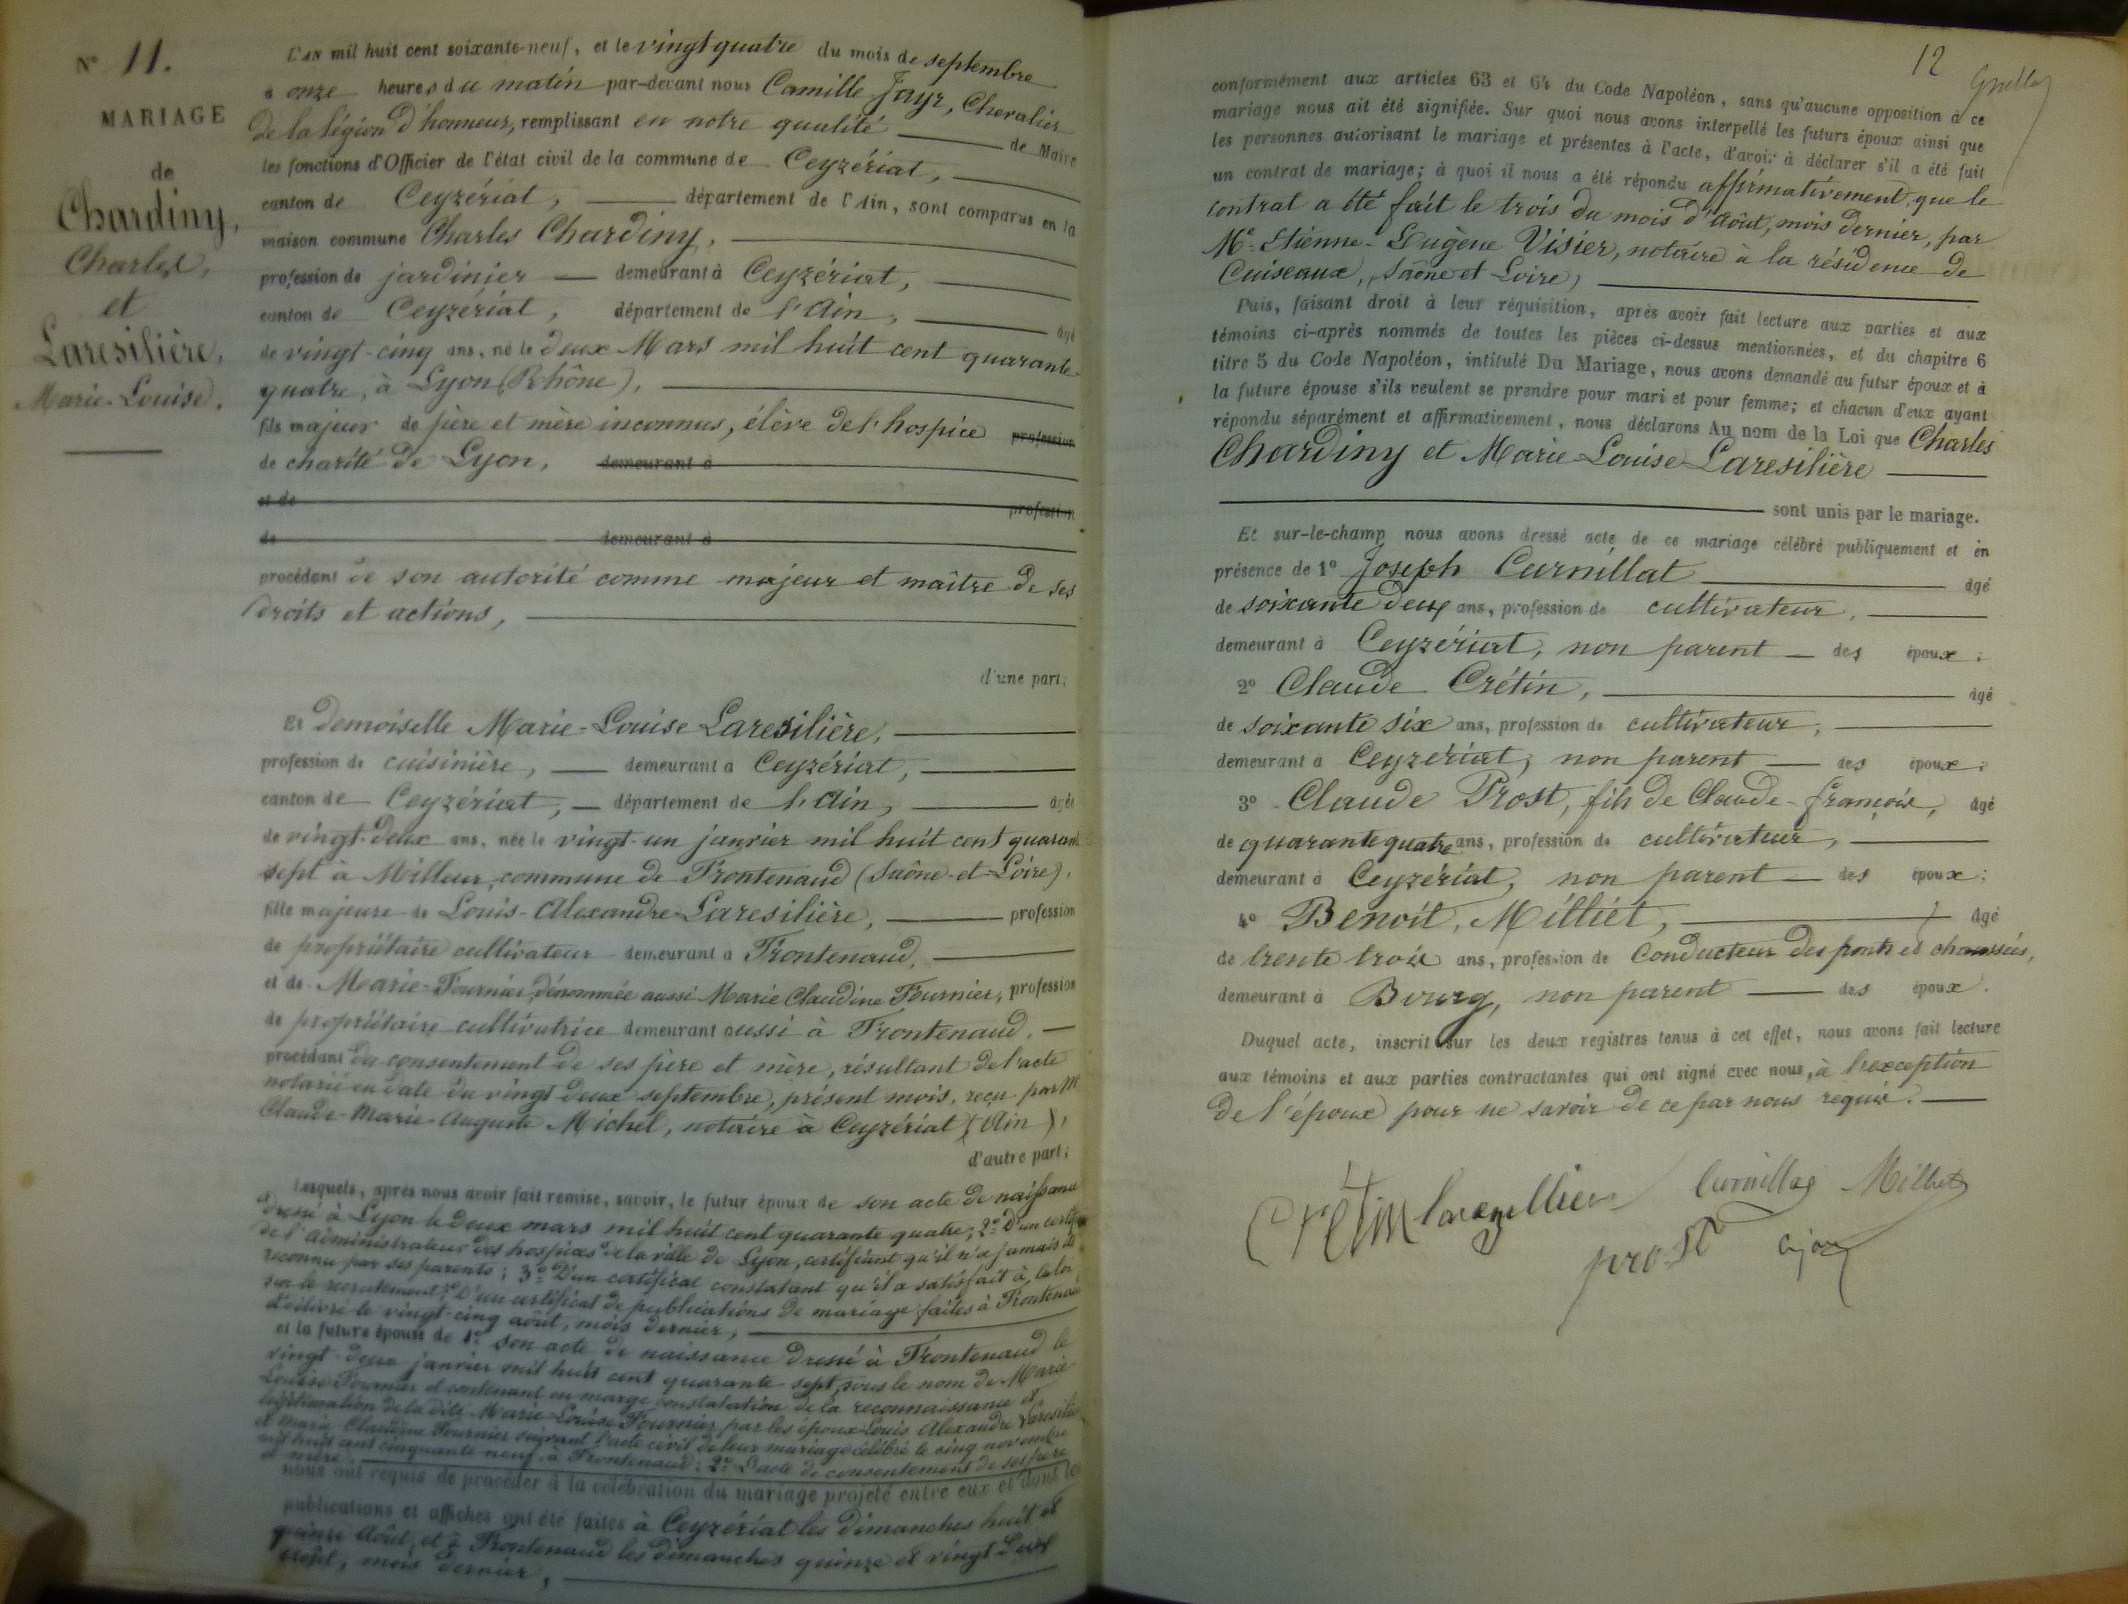 N° 11.
MARIAGE
de
Chardiny,
Charles,
et
Laresilière,
Marie-Louise.
L'AN mil huit cent soixante-neuf, et le vingt quatre du mois de septembre
à onze heures du matin par-devant nous Camille Jayr, Chevalier
de la légion d'honneur, remplissant en notre qualité de Maire
les fonctions d'Officier de l'état civil de la commune de Ceyzériat,
canton de Ceyzériat, département de l'Ain, sont comparus en la
maison commune Charles Chardiny,
profession de jardinier demeurant à Ceyzériat,
canton de Ceyzériat, département de l'Ain, âgé
de vingt-cinq ans, né le deux Mars mil huit cent quarante
quatre, à Lyon (Rhône),
fils majeur de père et mère inconnus, élève de l'hospice profession
de charité de Lyon, demeurant à
et de profession
de demeurant à
procédant de son autorité comme majeur et maître de ses
droits et actions,
d'une part;
Et demoiselle Marie-Louise Laresilière,
profession de cuisinière, demeurant à Ceyzériat,
canton de Ceyzériat, département de l'Ain, âgée
de vingt-deux ans, née le vingt-un janvier mil huit cent quarante
sept à Milleur, commune de Frontenaud (Saône-et-Loire),
fille majeure de Louis-Alexandre Laresilière, profession
de propriétaire cultivateur demeurant à Frontenaud,
et de Marie Fournier, dénommée aussi Marie Claudine Fournier, profession
de propriétaire cultivatrice demeurant aussi à Frontenaud,
procédant du consentement de ses père et mère, résultant de l'acte
notarié en date du vingt deux septembre, présent mois, reçu par Me
Claude-Marie-Auguste Michel, notaire à Ceyzériat (Ain),
d'autre part;
Lesquels, après nous avoir fait remise, savoir, le futur époux de son acte de naissance
dressé à Lyon le deux mars mil huit cent quarante quatre; 2° D'un certificat
de l'administrateur des hospices de la ville de Lyon, certifiant qu'il n'a jamais été
reconnu par ses parents; 3° D'un certificat constatant qu'il a satisfait à la loi
sur le recrutement; D'un certificat de publications de mariage faites à Frontenaud
délivré le vingt-cinq août, mois dernier,
et la future épouse de 1° son acte de naissance dressé à Frontenaud le
vingt-deux janvier mil huit cent quarante sept, sous le nom de Marie
Louise Fournier et contenant en marge constatation de la reconnaissance et
légitimation de la dite Marie-Louise Fournier par les époux Louis Alexandre Laresilière
et Marie Claudine Fournier suivant l'acte civil de leur mariage célébré le cinq novembre
mil huit cent cinquante neuf, à Frontenaud; 2° D'acte de consentement de ses père
et mère,
nous ont requis de procéder à la célébration du mariage projeté entre eux et dont les
publications et affiches ont été faites à Ceyzériat les dimanches huit et
quinze Août, et à Frontenaud les dimanches quinze et vingt-deux
août, mois dernier,
12
conformément aux articles 63 et 64 du Code Napoléon, sans qu'aucune opposition à ce
mariage nous ait été signifiée. Sur quoi nous avons interpellé les futurs époux ainsi que
les personnes autorisant le mariage et présentes à l'acte, d'avoir à déclarer s'il a été fait
un contrat de mariage; à quoi il nous a été répondu affirmativement, que le
contrat a été fait le trois du mois d'Août, mois dernier, par
Me Etienne-Eugène Visier, notaire à la résidence de
Cuiseaux, (Saône et Loire)
Puis, faisant droit à leur réquisition, après avoir fait lecture aux parties et aux
témoins ci-après nommés de toutes les pièces ci-dessus mentionnées, et du chapitre 6
titre 5 du Code Napoléon, intitulé Du Mariage, nous avons demandé au futur époux et à
la future épouse s'ils veulent se prendre pour mari et pour femme; et chacun d'eux ayant
répondu séparément et affirmativement, nous déclarons Au nom de la Loi que Charles
Chardiny et Marie Louise Laresilière
sont unis par le mariage.
Et sur-le-champ nous avons dressé acte de ce mariage célébré publiquement et en
présence de 1° Joseph Curnillat âgé
de soixante deux ans, profession de cultivateur,
demeurant à Ceyzériat, non parent des époux;
2° Claude Crétin, âgé
de soixante six ans, profession de cultivateur,
demeurant à Ceyzériat, non parent des époux;
3° Claude Prost, fils de Claude-François, âgé
de quarante quatre ans, profession de cultivateur,
demeurant à Ceyzériat, non parent des époux;
4° Benoît Milliet, âgé
de trente trois ans, profession de Conducteur des ponts et chaussées,
demeurant à Bourg, non parent des époux.
Duquel acte, inscrit sur les deux registres tenus à cet effet, nous avons fait lecture
aux témoins et aux parties contractantes qui ont signé avec nous, à l'exception
de l'époux pour ne savoir de ce par nous requis.
Crétin Curnillat Milliet
prost